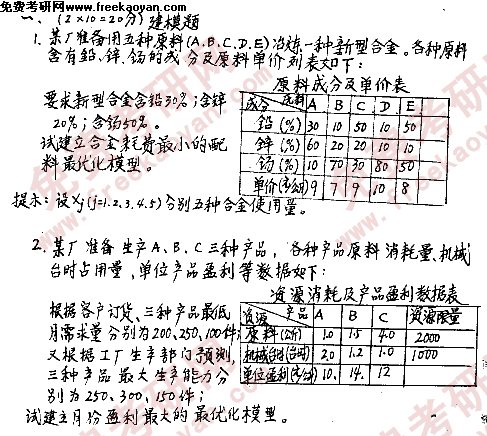 免费考研网
www.freekaoyan.com
一、(2×10=20分)建模题
1. 某厂准备用五种原料(A、B、C、D、E)冶炼一种新型合金。各种原料
含有铅、锌、锡的成分及原料单价列表如下:
原料成分及单价表
要求新型合金含铅30%;含锌
20%;含锡50%。
试建立合金耗费最小的配
料最优化模型。
成分 原料 A B C D E
铅(%) 30 10 50 10 50
锌(%) 60 20 20 10 10
锡(%) 10 70 30 80 50
单价(元/公斤) 9 7 9 10 8
提示:设Xj(j=1.2.3.4.5)分别五种合金使用量。
2. 某厂准备生产A、B、C三种产品,各种产品原料消耗量、机械
台时占用量,单位产品盈利等数据如下:
资源消耗及产品盈利数据表
根据客户订货、三种产品最低
月需求量分别为200、250、100件;
又根据工厂生产部门预测,
三种产品最大生产能力分
别为250、300、150件;
资源 产品 A B C 资源限量
原料(公斤) 1.0 1.5 4.0 2000
机械台时(台时) 2.0 1.2 1.0 1000
单位盈利(元/公斤) 10. 14. 12
试建立月份盈利最大的最优化模型。